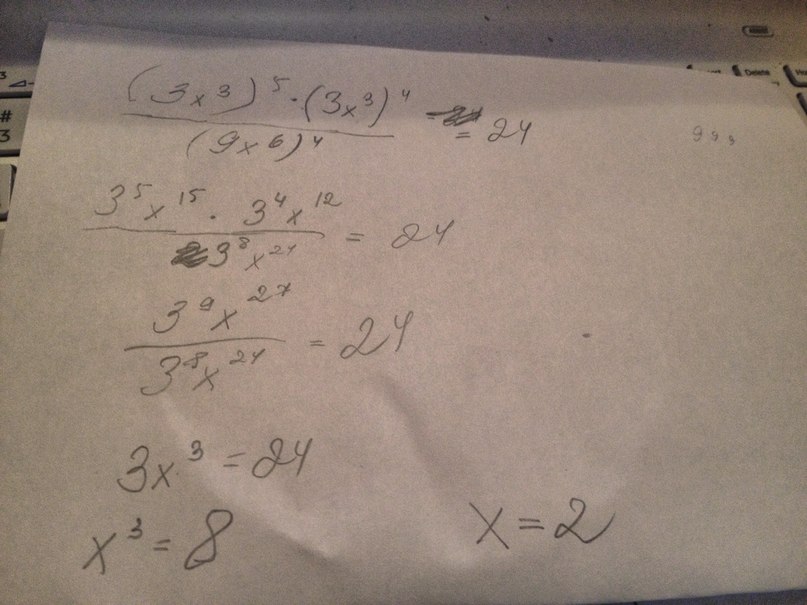 (3x³)⁵·(3x³)⁴ / (9x⁶)⁴ = 24
3⁵x¹⁵ · 3⁴x¹² / 3⁸x²⁴ = 24
3⁹x²⁷ / 3⁸x²⁴ = 24
3x³ = 24
x³ = 8
x = 2
Delete
#
3